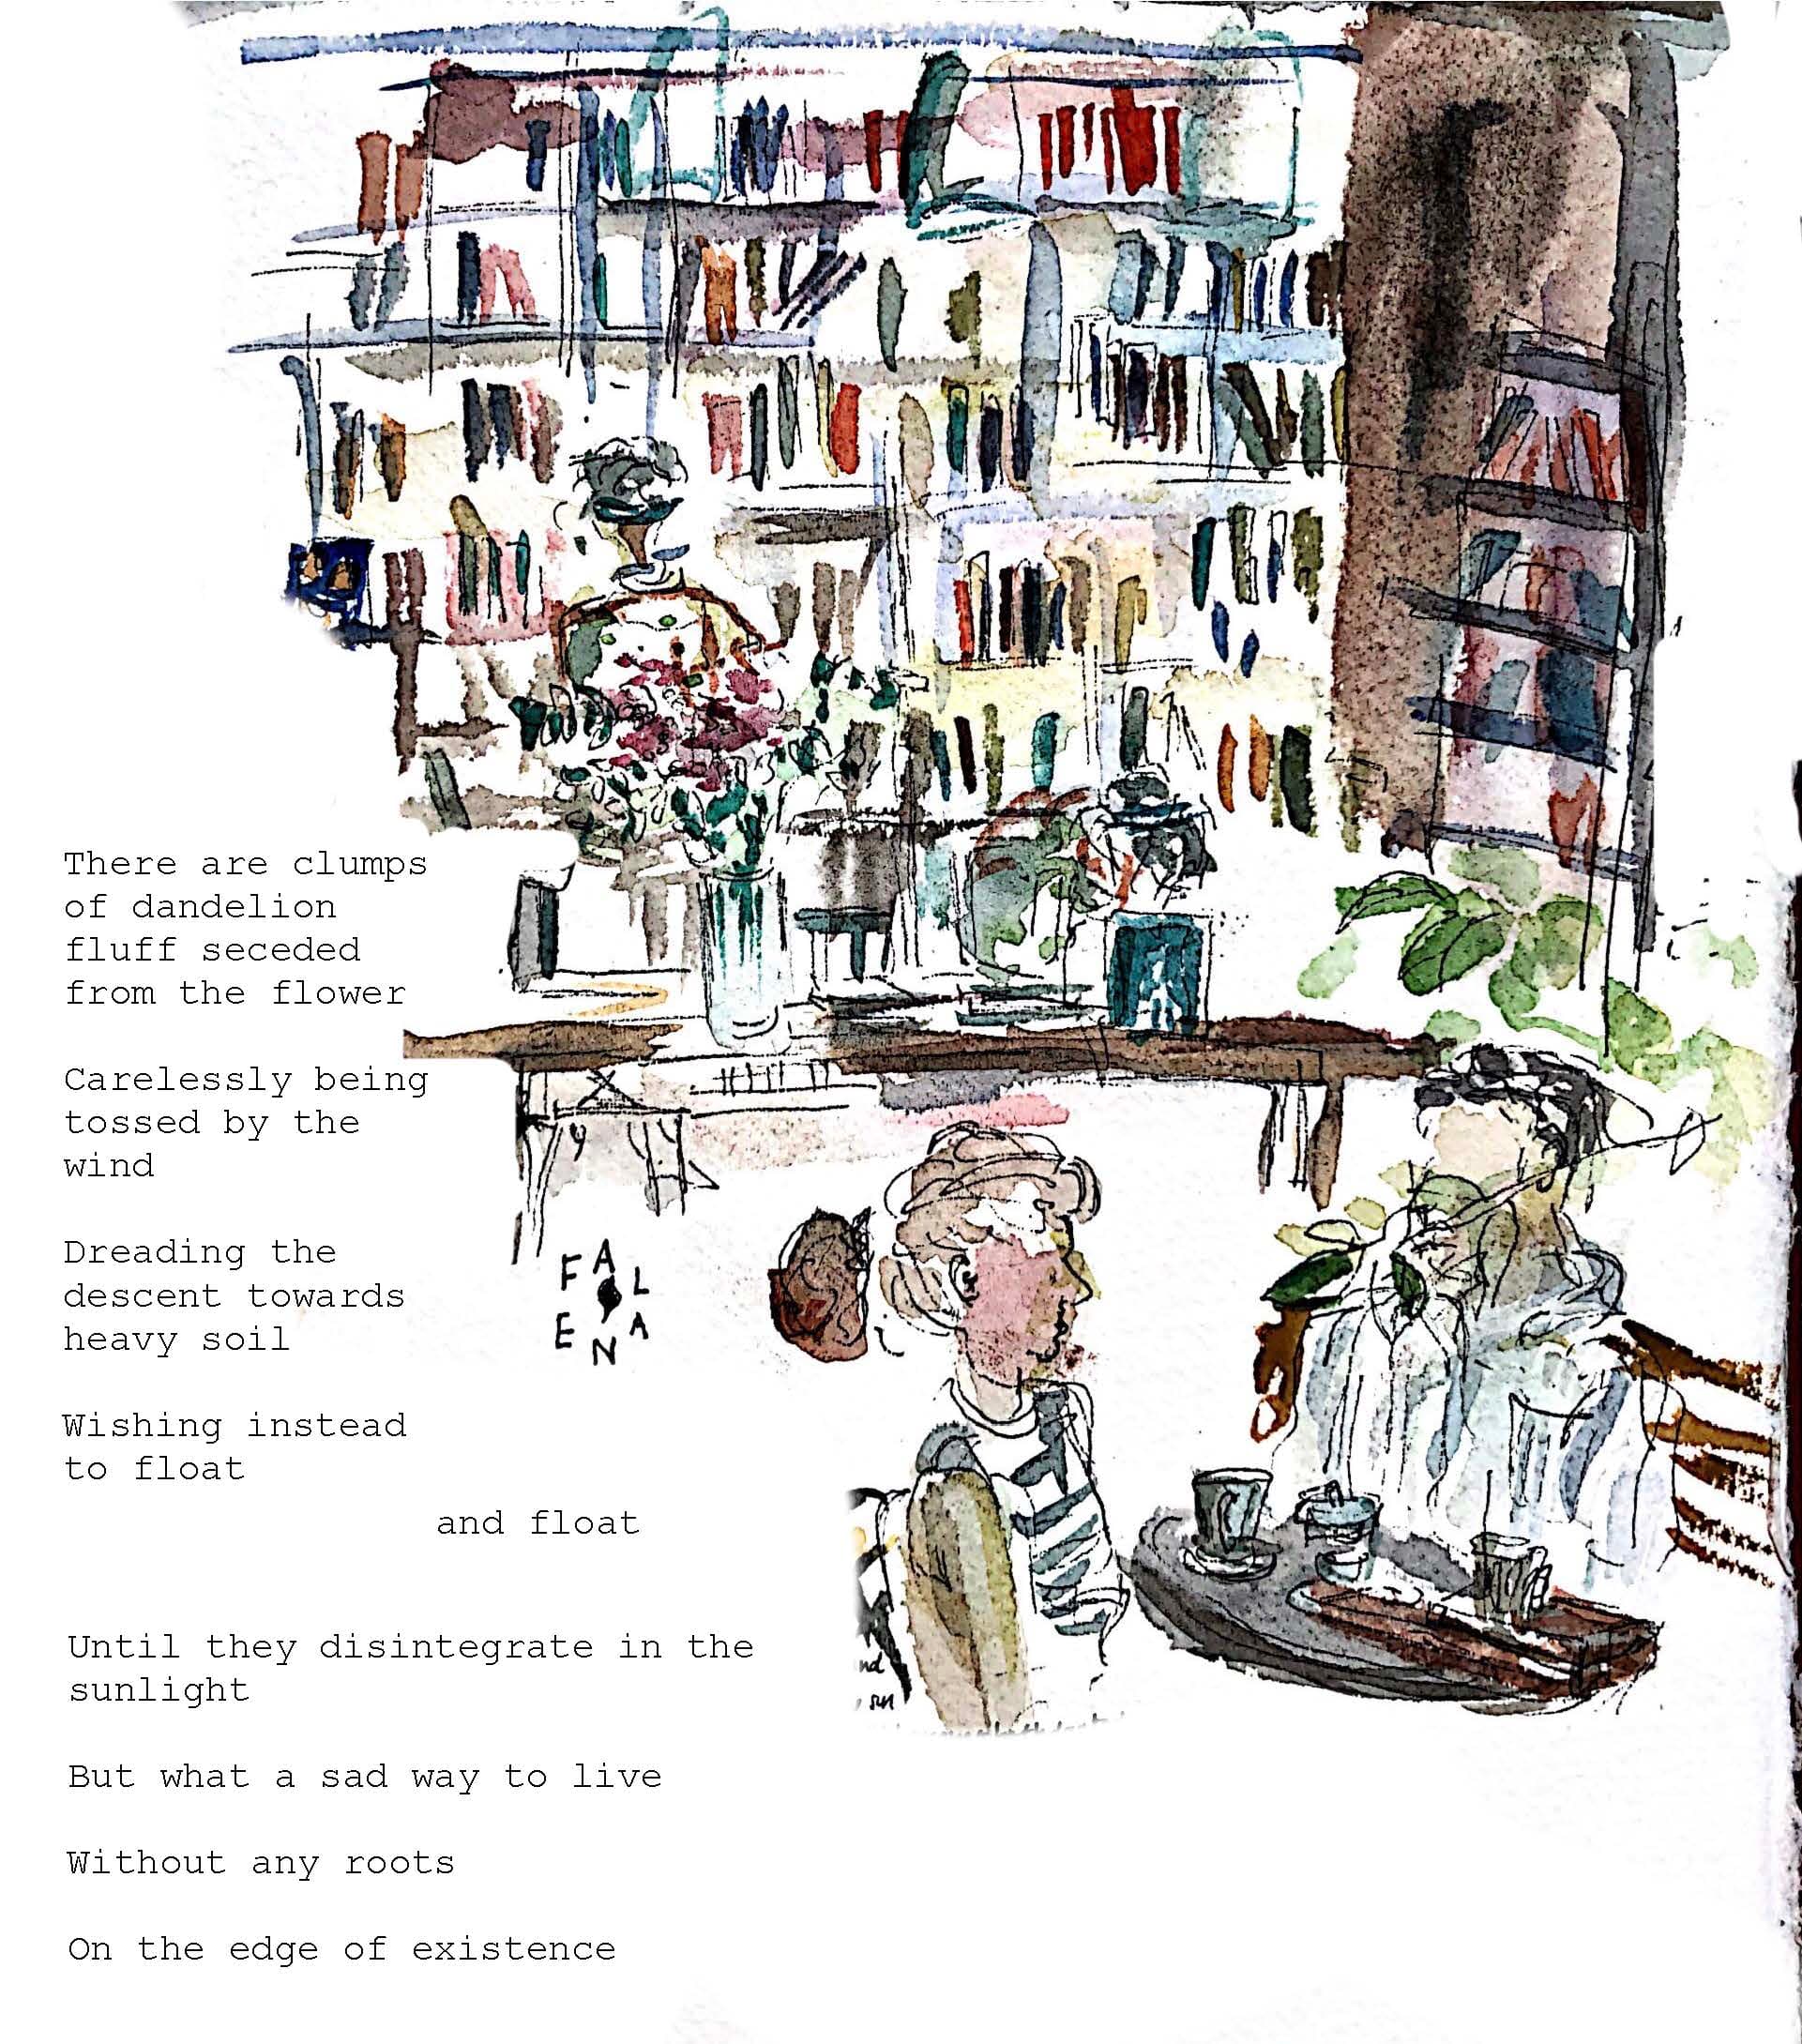 There are clumps
of dandelion
fluff seceded
from the flower
Carelessly being
tossed by the
wind
Dreading the
descent towards
heavy soil
Wishing instead
to float
and float
Until they disintegrate in the
sunlight
But what a sad way to live
Without any roots
On the edge of existence
FALENA
nd
sun